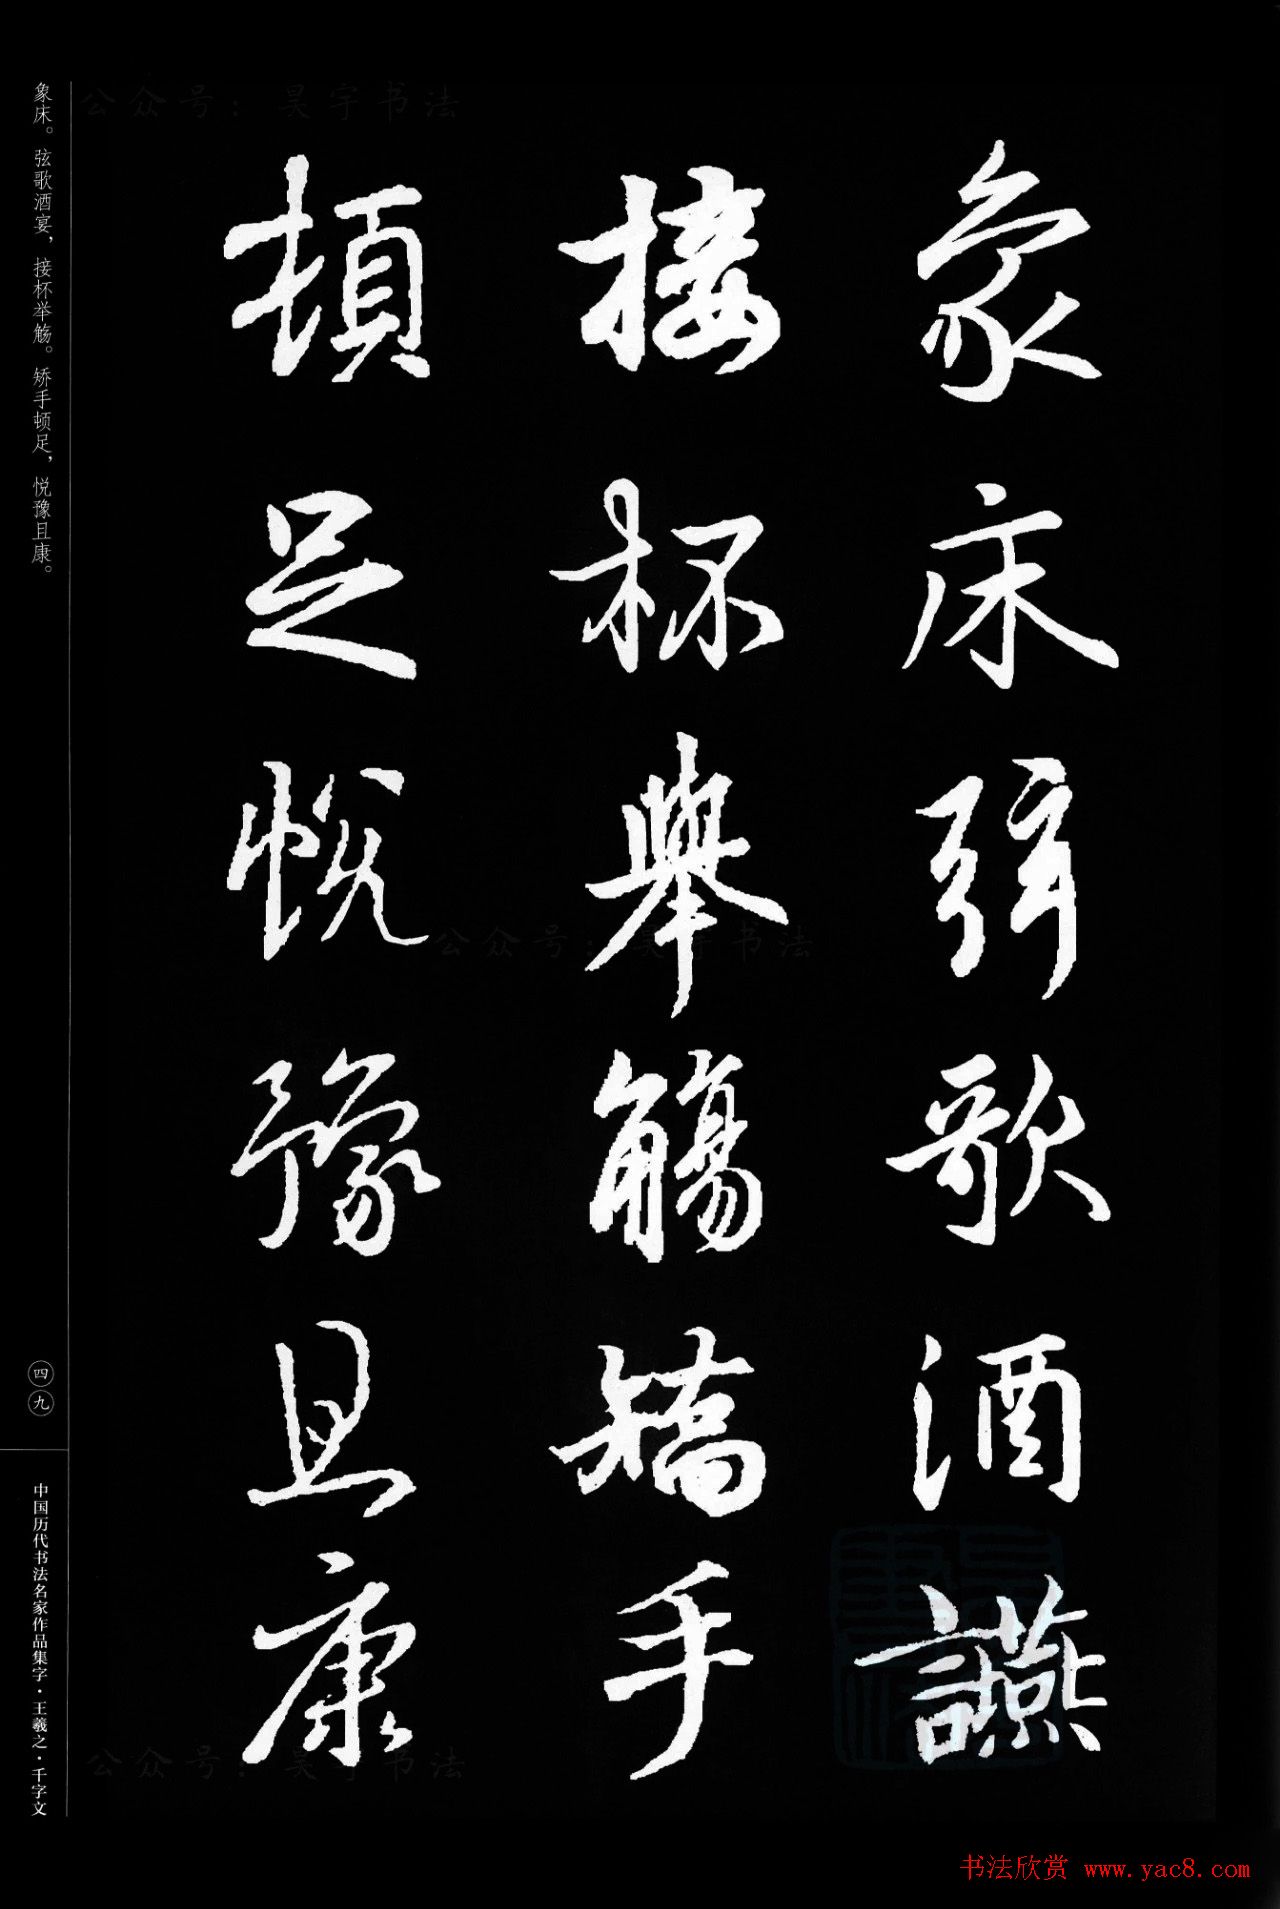 象床弦歌酒讌
接杯舉觴矯手
頓足悦豫且康
象床。弦歌酒宴，接杯举觞。矫手顿足，悦豫且康。
四九
中国历代书法名家作品集字·王羲之·千字文
公众号：昊宇书法
公众号：昊宇书法
公众号：昊宇书法
书法欣赏 www.yac8.com